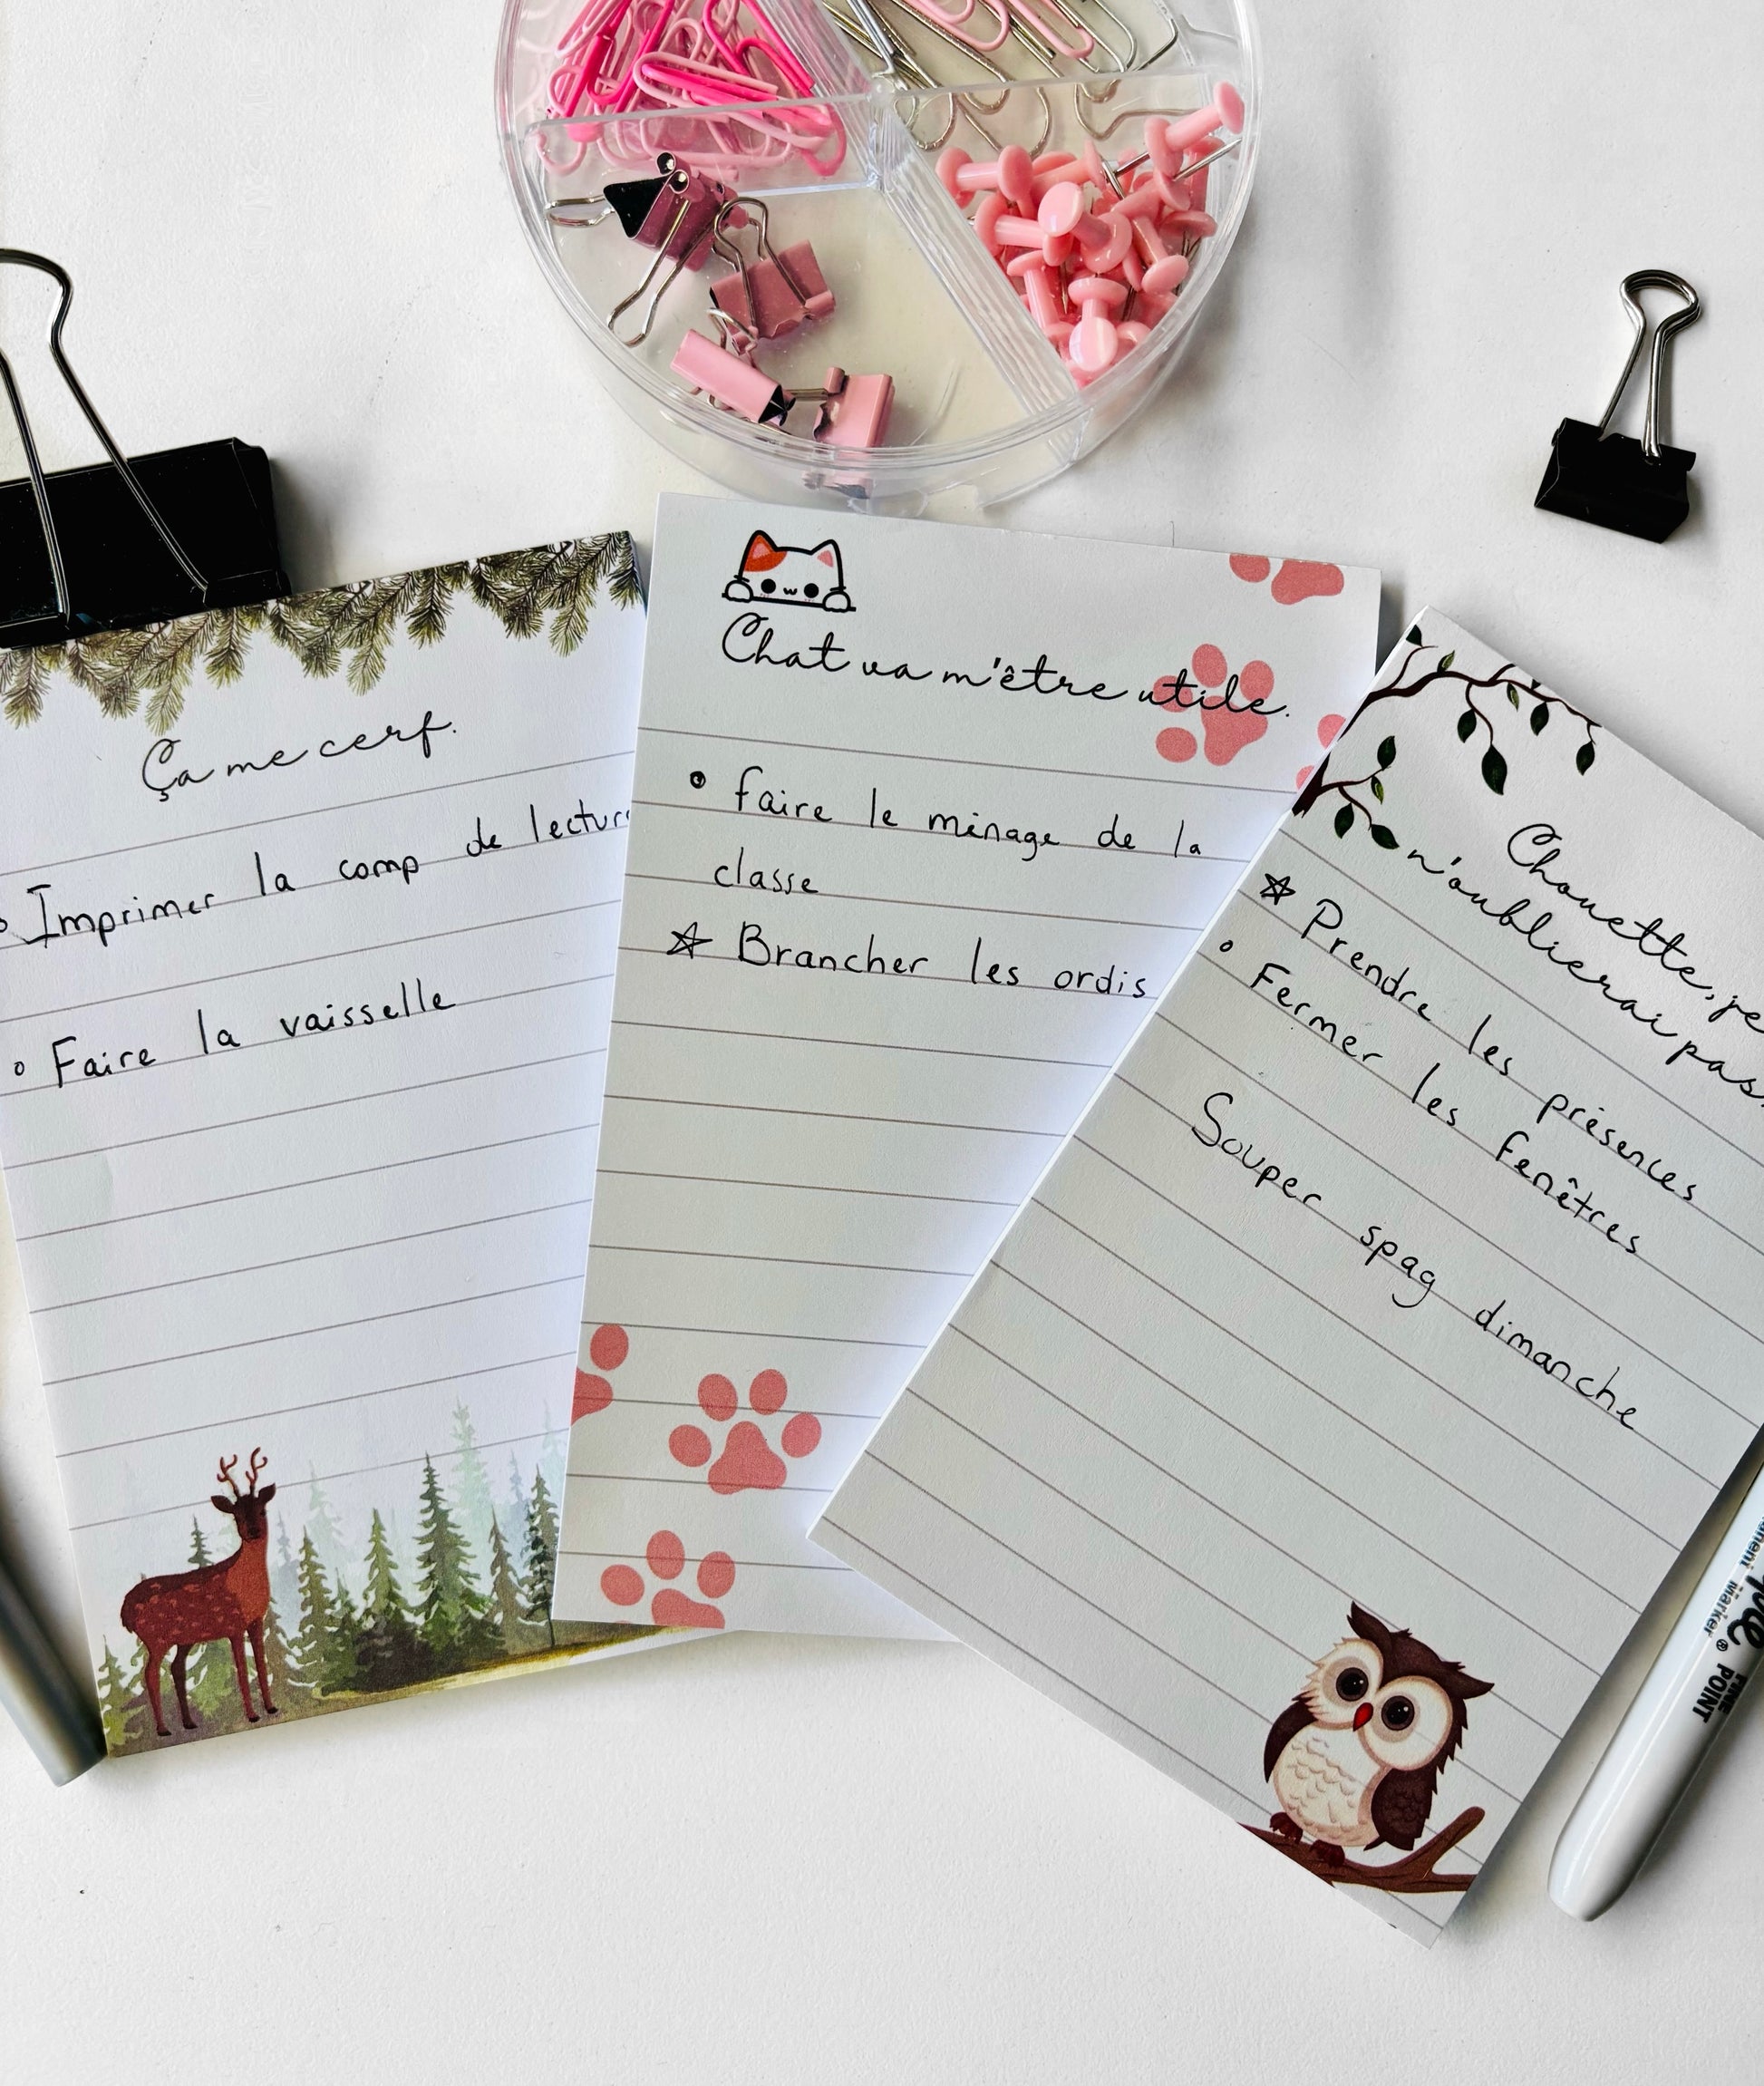 Ça me cerf.
Imprimer la comp de lecture
Faire la vaisselle
Chat va m'être utile.
faire le ménage de la
classe
Brancher les ordis
Chouette, je
n'oublierai pas.
Prendre les présences
Fermer les fenêtres
Souper spag dimanche
Marker®
FINE
POINT